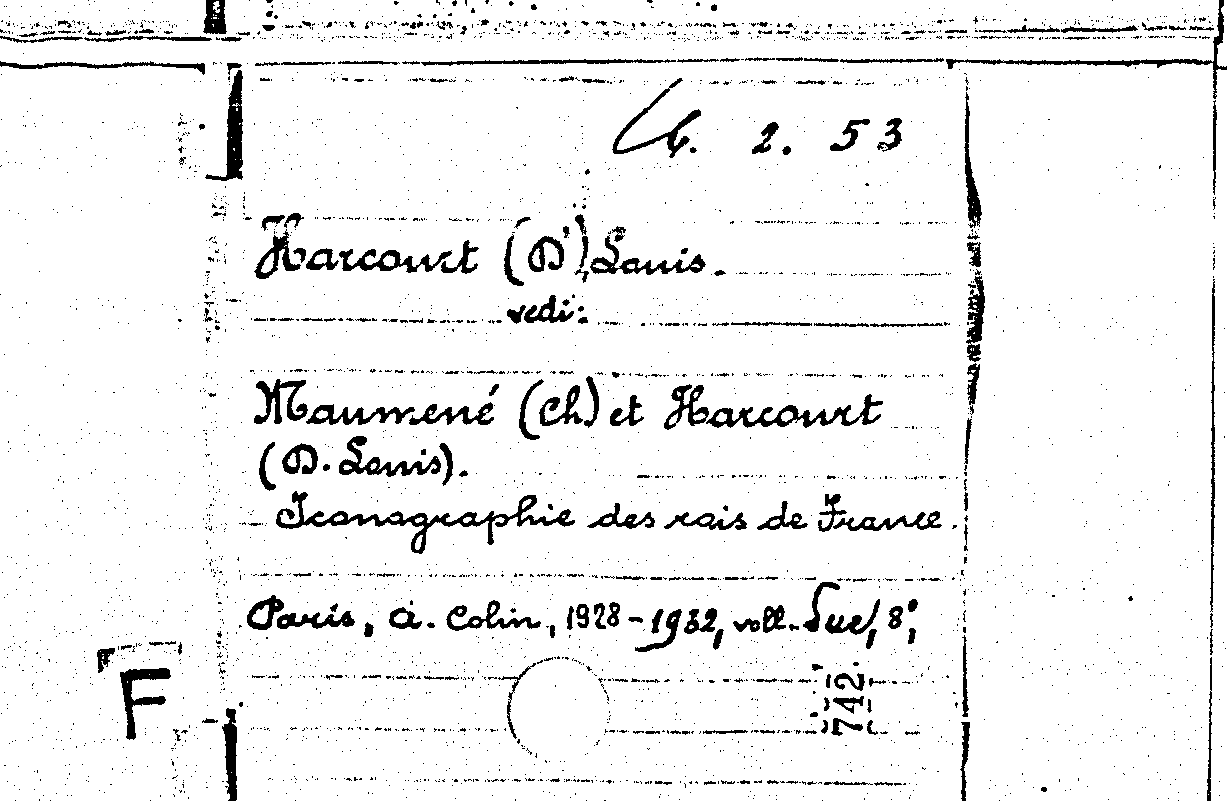 G. 2. 53
Harcourt (D') Louis.
vedi:
Maumené (Ch) et Harcourt
(D. Louis).
Iconographie des rois de France.
Paris, A. Colin, 1928-1932, voll. due, 8°,
742.
F